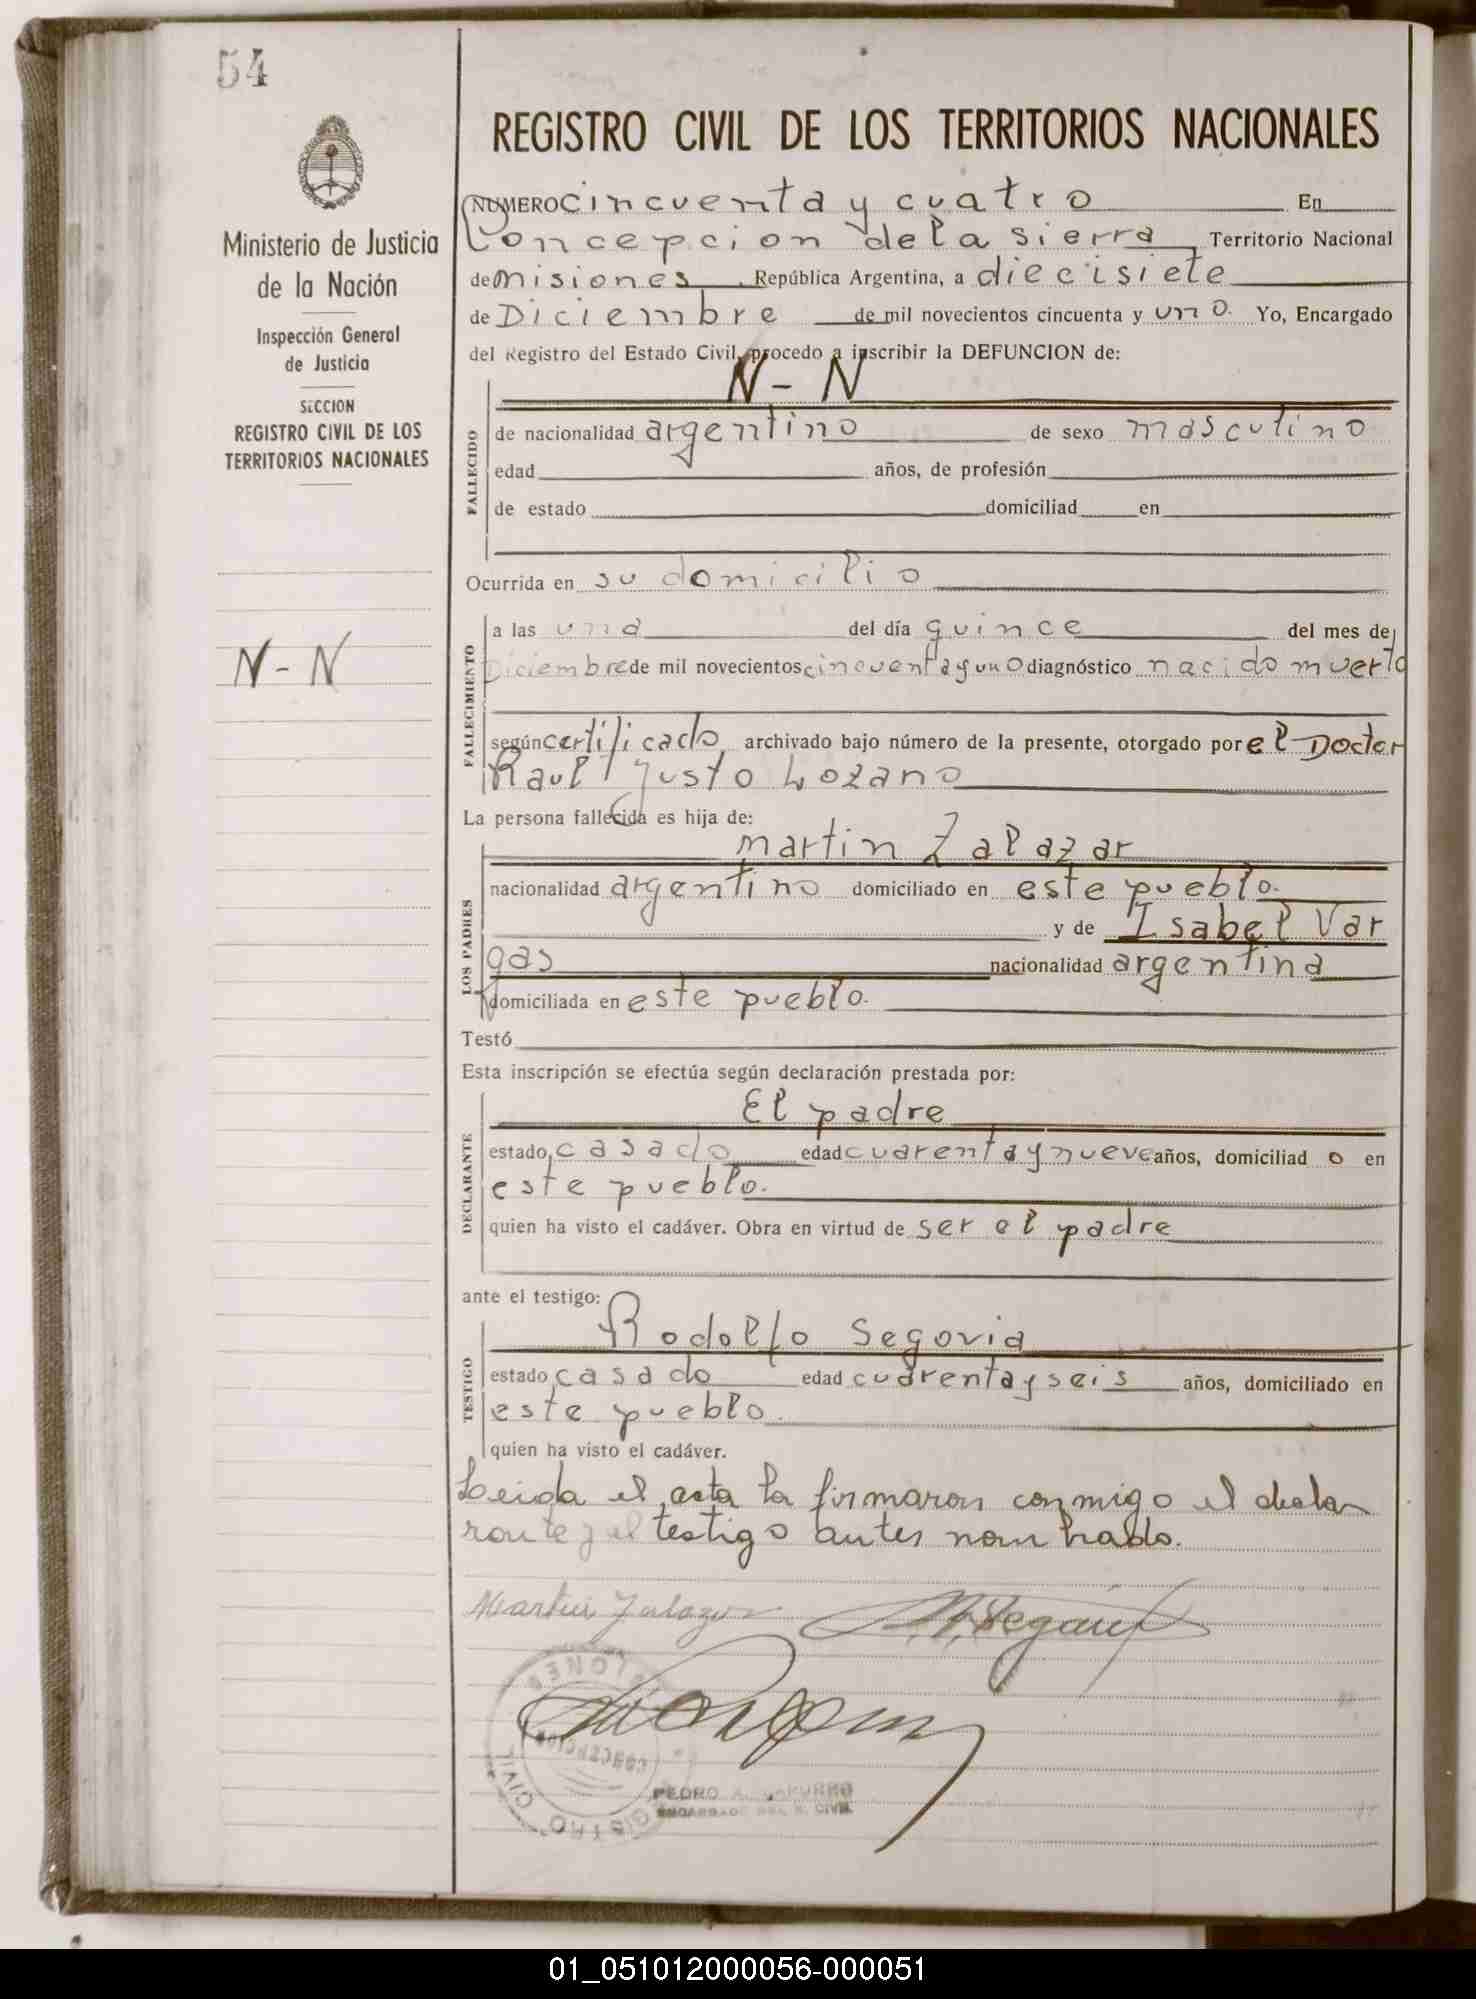 54
Ministerio de Justicia
de la Nación
Inspección General
de Justicia
SECCION
REGISTRO CIVIL DE LOS
TERRITORIOS NACIONALES
N-N
REGISTRO CIVIL DE LOS TERRITORIOS NACIONALES
NUMERO cincuenta y cuatro En
Concepcion de la sierra Territorio Nacional
de Misiones República Argentina, a diecisiete
de Diciembre de mil novecientos cincuenta y uno. Yo, Encargado
del Registro del Estado Civil, procedo a inscribir la DEFUNCION de:
N-N
FALLECIDO
de nacionalidad argentino de sexo masculino
edad años, de profesión
de estado domiciliad en
Ocurrida en su domicilio
FALLECIMIENTO
a las una del día quince del mes de
Diciembre de mil novecientos cincuenta y uno diagnóstico nacido muerto
según certificado archivado bajo número de la presente, otorgado por el Doctor
Raul Justo Lozano
La persona fallecida es hija de:
LOS PADRES
martin Zalazar
nacionalidad argentino domiciliado en este pueblo.
y de Isabel Var
gas nacionalidad argentina
domiciliada en este pueblo.
Testó
Esta inscripción se efectúa según declaración prestada por:
DECLARANTE
El padre
estado casado edad cuarenta y nueve años, domiciliad o en
este pueblo.
quien ha visto el cadáver. Obra en virtud de ser el padre
ante el testigo:
TESTIGO
Rodolfo Segovia
estado casado edad cuarenta y seis años, domiciliado en
este pueblo.
quien ha visto el cadáver.
Leida el acta la firmaron conmigo el decla
rante y el testigo antes nombrado.
Martin Zalazar
REGISTRO CIVIL
MISIONES
CONCEPCION
PEDRO A.
ENCARGADO DEL R. CIVIL
01_051012000056-000051